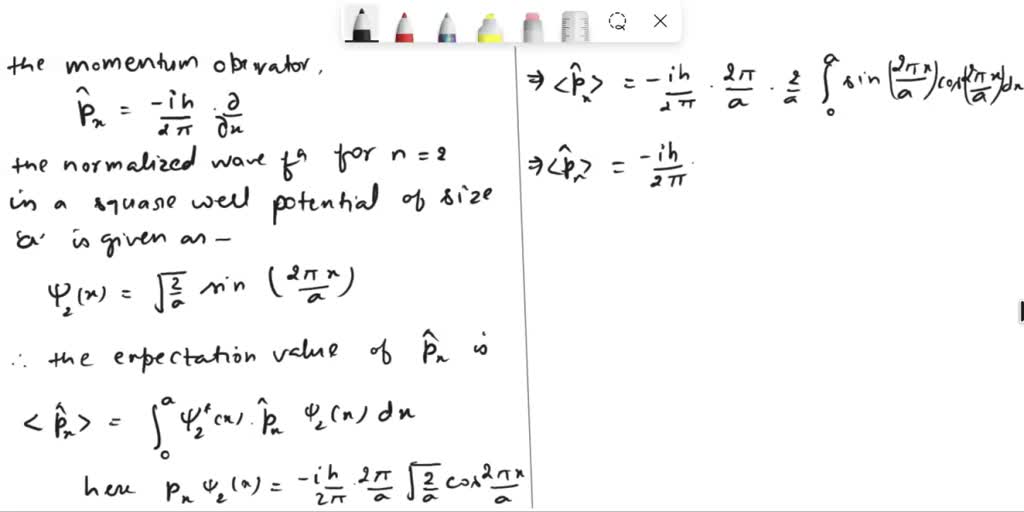 the momentum operator,
p̂ₓ = -ih/2π · ∂/∂x
the normalized wave fⁿ for n = 2
in a square well potential of size
'a' is given as -
ψ₂(x) = √(2/a) sin (2πx/a)
∴ the expectation value of p̂ₓ is
< p̂ₓ > = ∫₀ᵃ ψ₂*(x) · p̂ₓ ψ₂(x) dx
here pₓ ψ₂(x) = -ih/2π · 2π/a √(2/a) cos 2πx/a
⇒ <p̂ₓ> = -ih/2π · 2π/a · 2/a ∫₀ᵃ sin(2πx/a) cos(2πx/a) dx
⇒ <p̂ₓ> = -ih/2π ·